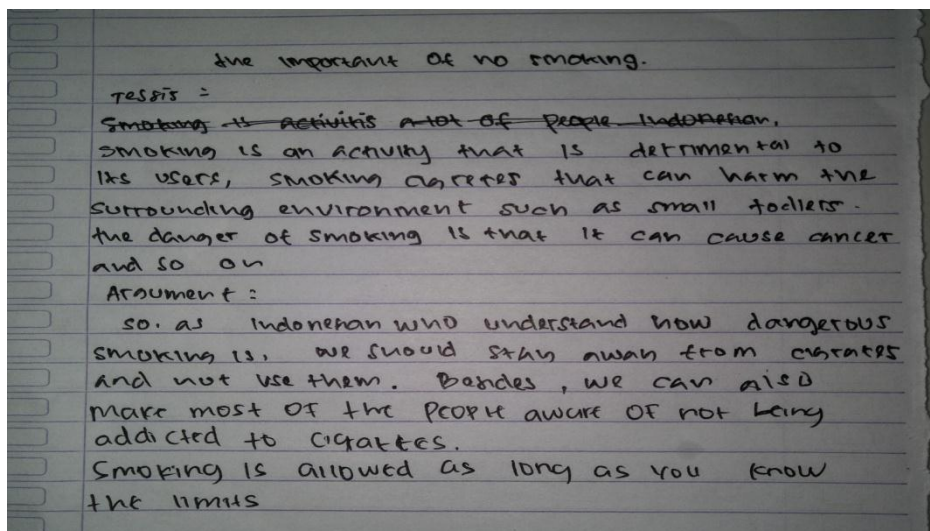 the important of no smoking.
Tessis :
Smoking is activitis a lot of people Indonesian.
smoking is an activity that is detrimental to
its users, smoking cigretes that can harm the
surrounding environment such as small todlers.
the danger of smoking is that it can cause cancer
and so on
Argument :
so. as Indonesian who understand how dangerous
smoking is, we should stay away from cigrates
and not use them. Besides, we can also
make most of the people aware of not being
addicted to cigarttes.
Smoking is allowed as long as you know
the limits